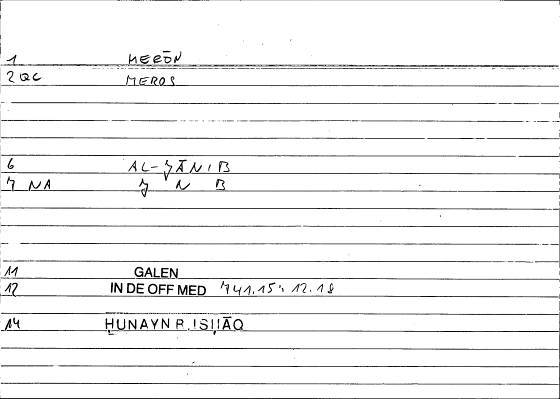 1 MERŌN
2 QC MEROS
6 AL-JĀNIB
7 NA J N B
11 GALEN
12 IN DE OFF MED 741.15; 12.18
14 ḤUNAYN B. ISḤĀQ